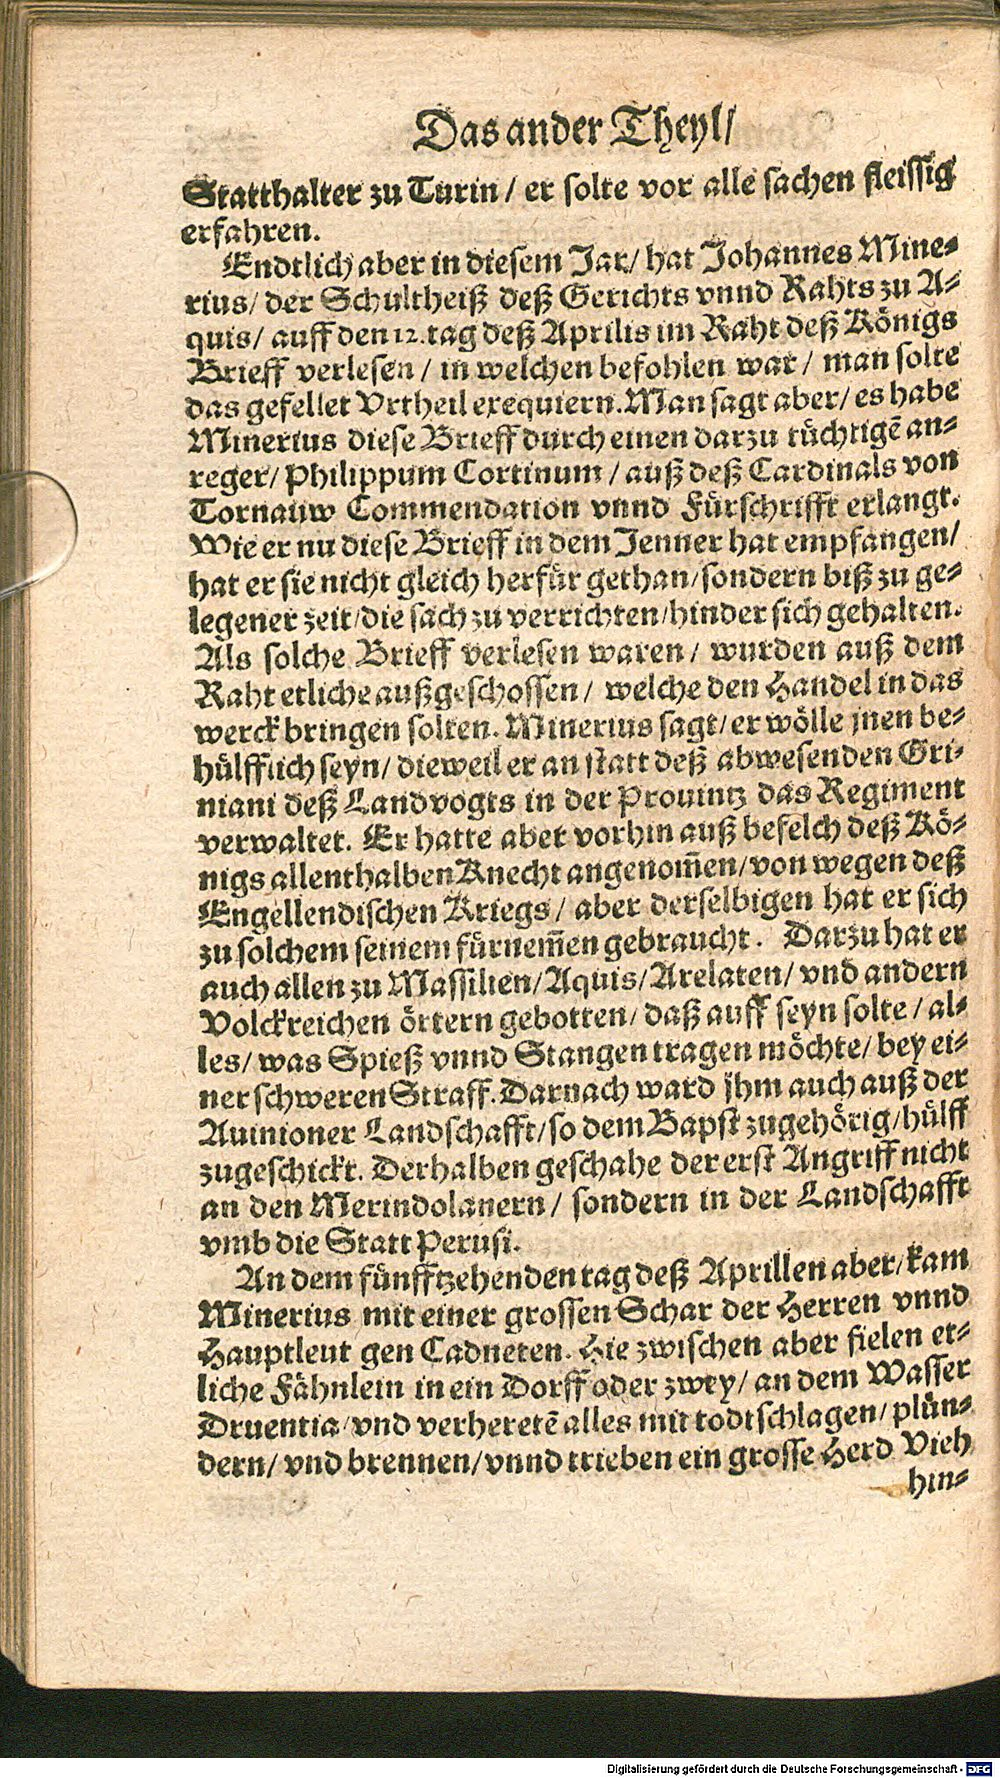 Das ander Theyl/
Statthalter zu Turin / er solte vor alle sachen fleissig
erfahren.
Endtlich aber in diesem Jar/ hat Johannes Mine-
rius/ der Schultheiß deß Gerichts vnnd Rahts zu A-
quis/ auff den 12. tag deß Aprilis im Raht deß Königs
Brieff verlesen / in welchen befohlen war / man solte
das gefellet Vrtheil exequiern. Man sagt aber/ es habe
Minerius diese Brieff durch einen darzu tüchtigē an-
reger/ Philippum Cortinum / auß deß Cardinals von
Tornauw Commendation vnnd Fürschrifft erlangt.
Wie er nu diese Brieff in dem Jenner hat empfangen/
hat er sie nicht gleich herfür gethan/ sondern biß zu ge-
legener zeit/ die sach zu verrichten/ hinder sich gehalten.
Als solche Brieff verlesen waren / wurden auß dem
Raht etliche außgeschossen / welche den Handel in das
werck bringen solten. Minerius sagt/ er wölle jnen be-
hülfflich seyn/ dieweil er an statt deß abwesenden Gri-
niani deß Landvogts in der Prouintz das Regiment
verwaltet. Er hatte aber vorhin auß befelch deß Kö-
nigs allenthalben Knecht angenom̄en/ von wegen deß
Engellendischen Kriegs / aber derselbigen hat er sich
zu solchem seinem fürnem̄en gebraucht. Darzu hat er
auch allen zu Massilien/ Aquis/ Arelaten/ vnd andern
Volckreichen örtern gebotten/ daß auff seyn solte / al-
les/ was Spieß vnnd Stangen tragen möchte/ bey ei-
ner schweren Straff. Darnach ward jhm auch auß der
Auinioner Landschafft/ so dem Bapst zugehörig/ hülff
zugeschickt. Derhalben geschahe der erst Angriff nicht
an den Merindolanern / sondern in der Landschafft
vmb die Statt Perusi.
An dem fünfftzehenden tag deß Aprillen aber/ kam
Minerius mit einer grossen Schar der Herren vnnd
Hauptleut gen Cadneten. Hie zwischen aber fielen et-
liche Fähnlein in ein Dorff oder zwey/ an dem Wasser
Druentia/ vnd verheretē alles mit todtschlagen/ plün-
dern/ vnd brennen/ vnnd trieben ein grosse Herd Vieh
hin-
Digitalisierung gefördert durch die Deutsche Forschungsgemeinschaft - DFG